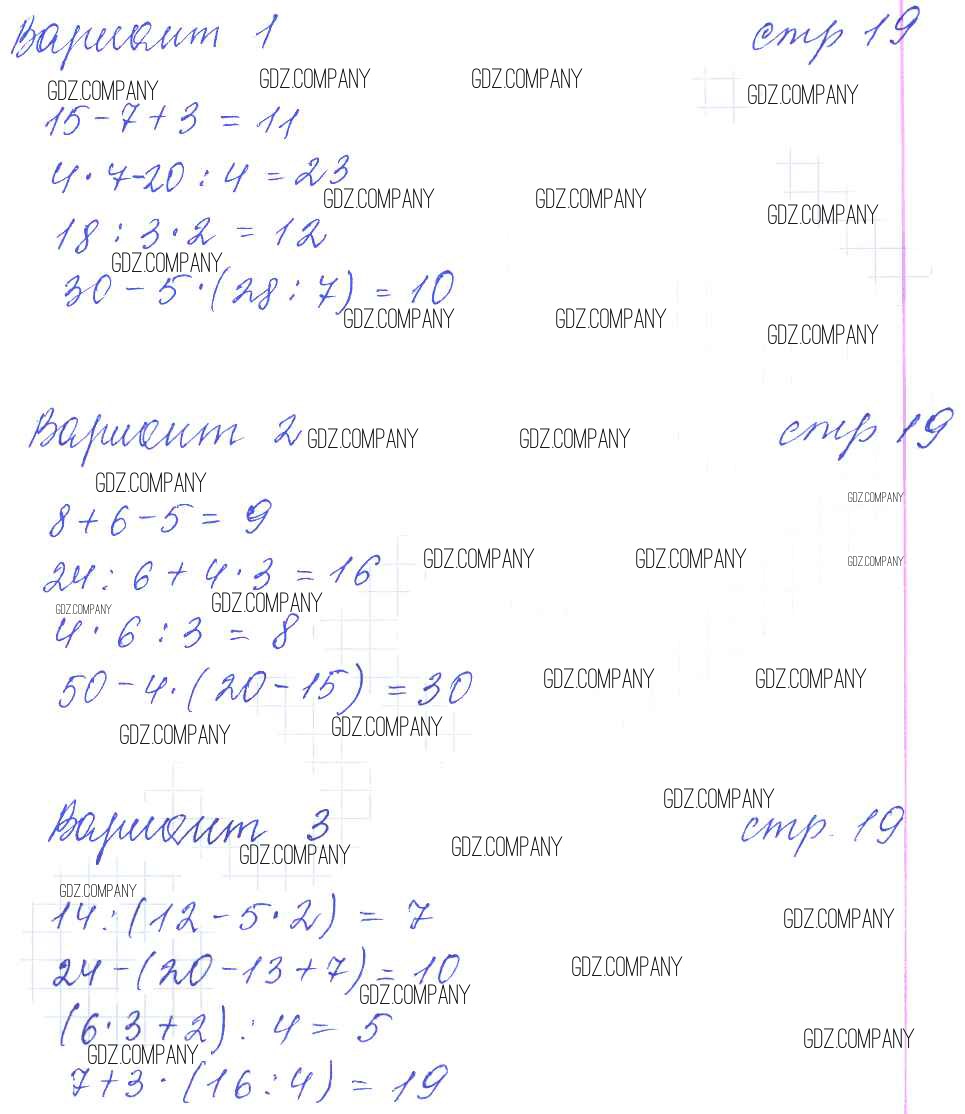 Вариант 1 стр 19
GDZ.COMPANY GDZ.COMPANY GDZ.COMPANY GDZ.COMPANY
15 - 7 + 3 = 11
4 · 7 - 20 : 4 = 23
GDZ.COMPANY GDZ.COMPANY GDZ.COMPANY
18 : 3 · 2 = 12
GDZ.COMPANY
30 - 5 · (28 : 7) = 10
GDZ.COMPANY GDZ.COMPANY GDZ.COMPANY
Вариант 2 стр 19
GDZ.COMPANY GDZ.COMPANY
GDZ.COMPANY GDZ.COMPANY
8 + 6 - 5 = 9
GDZ.COMPANY GDZ.COMPANY GDZ.COMPANY
24 : 6 + 4 · 3 = 16
GDZ.COMPANY GDZ.COMPANY
4 · 6 : 3 = 8
50 - 4 · (20 - 15) = 30
GDZ.COMPANY GDZ.COMPANY
GDZ.COMPANY GDZ.COMPANY
GDZ.COMPANY
Вариант 3 стр. 19
GDZ.COMPANY GDZ.COMPANY
GDZ.COMPANY
14 : (12 - 5 · 2) = 7
GDZ.COMPANY
24 - (20 - 13 + 7) = 10
GDZ.COMPANY GDZ.COMPANY
(6 · 3 + 2) : 4 = 5
GDZ.COMPANY GDZ.COMPANY
7 + 3 · (16 : 4) = 19